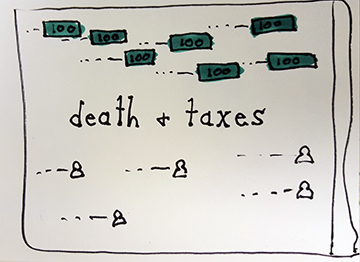 100 100 100 100
100 100 100
death & taxes